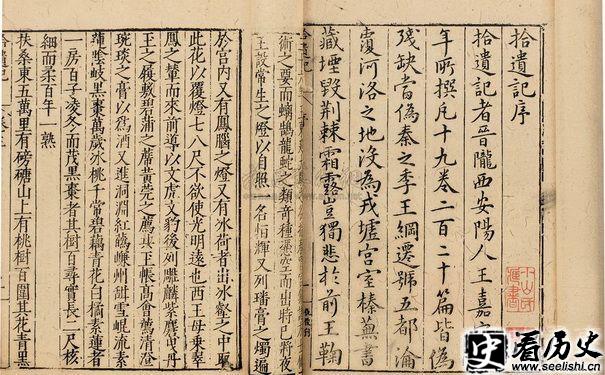 拾遺記序
拾遺記者晉隴西安陽人王嘉字
年所撰凡十九卷二百二十篇皆為
殘缺當偽秦之季王綱遷號五都淪
覆河洛之地沒為戎墟宮室榛蕪書
藏堙毀荊棘霜露豈獨悲於前王鞠
術之要而螭鵠龍蛇之類奇種憑空而出時已將夜
王設常生之燈以自照一名恒輝又列璠膏之燭遍
拾遺記
於宮內又有鳳腦之燈又有冰荷者出冰壑之中取
此花以覆燈七八尺不欲使光明遠也西王母乘翠
鳳之輦而來前導以文虎文豹後列雕麟紫麏曳丹
玉之履敷碧蒲之席黃莞之薦共玉帳高會薦清澄
琬琰之膏以為酒又進洞淵紅蘤嵰州甜雪崐流素
蓮陰岐黑棗萬歲冰桃千常碧藕青花白橘素蓮者
一房百子凌冬而茂黑棗者其樹百尋實長二尺核
細而柔百年一熟
扶桑東五萬里有磅磄山上有桃樹百圍其花青黑
看历史
www.seelishi.cn